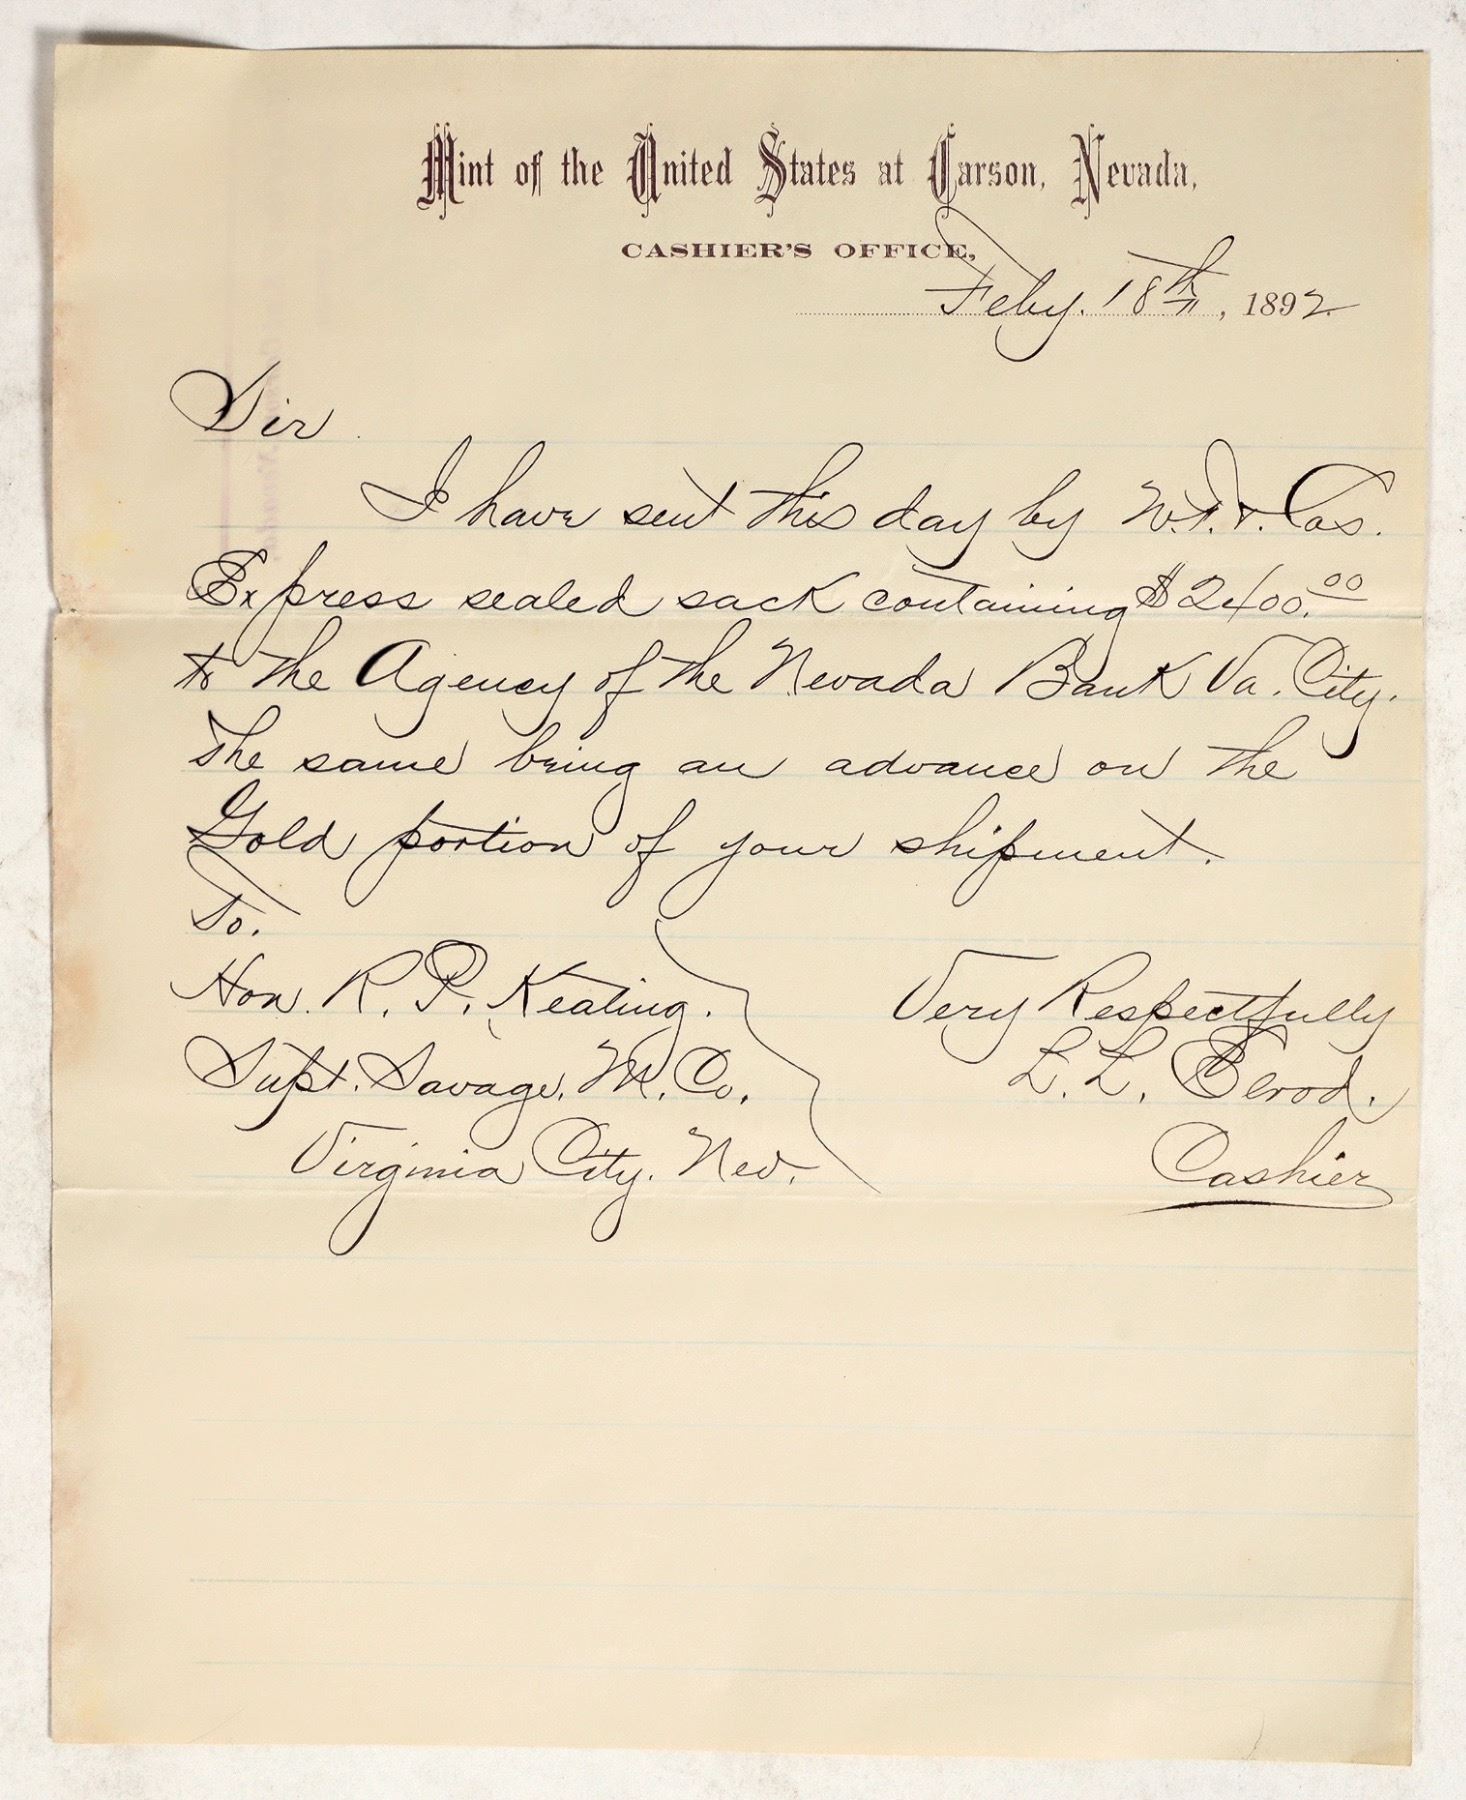 Mint of the United States at Carson, Nevada,
CASHIER'S OFFICE,
Feby. 18th, 1892
Sir
I have sent this day by W. F. & Cos.
Express sealed sack containing $2400.00
to the Agency of the Nevada Bank Va. City.
The same being an advance on the
Gold portion of your shipment.
To.
Hon. R. P. Keating.
Supt. Savage. M. Co.
Virginia City. Nev.
Very Respectfully
L. L. Elrod.
Cashier